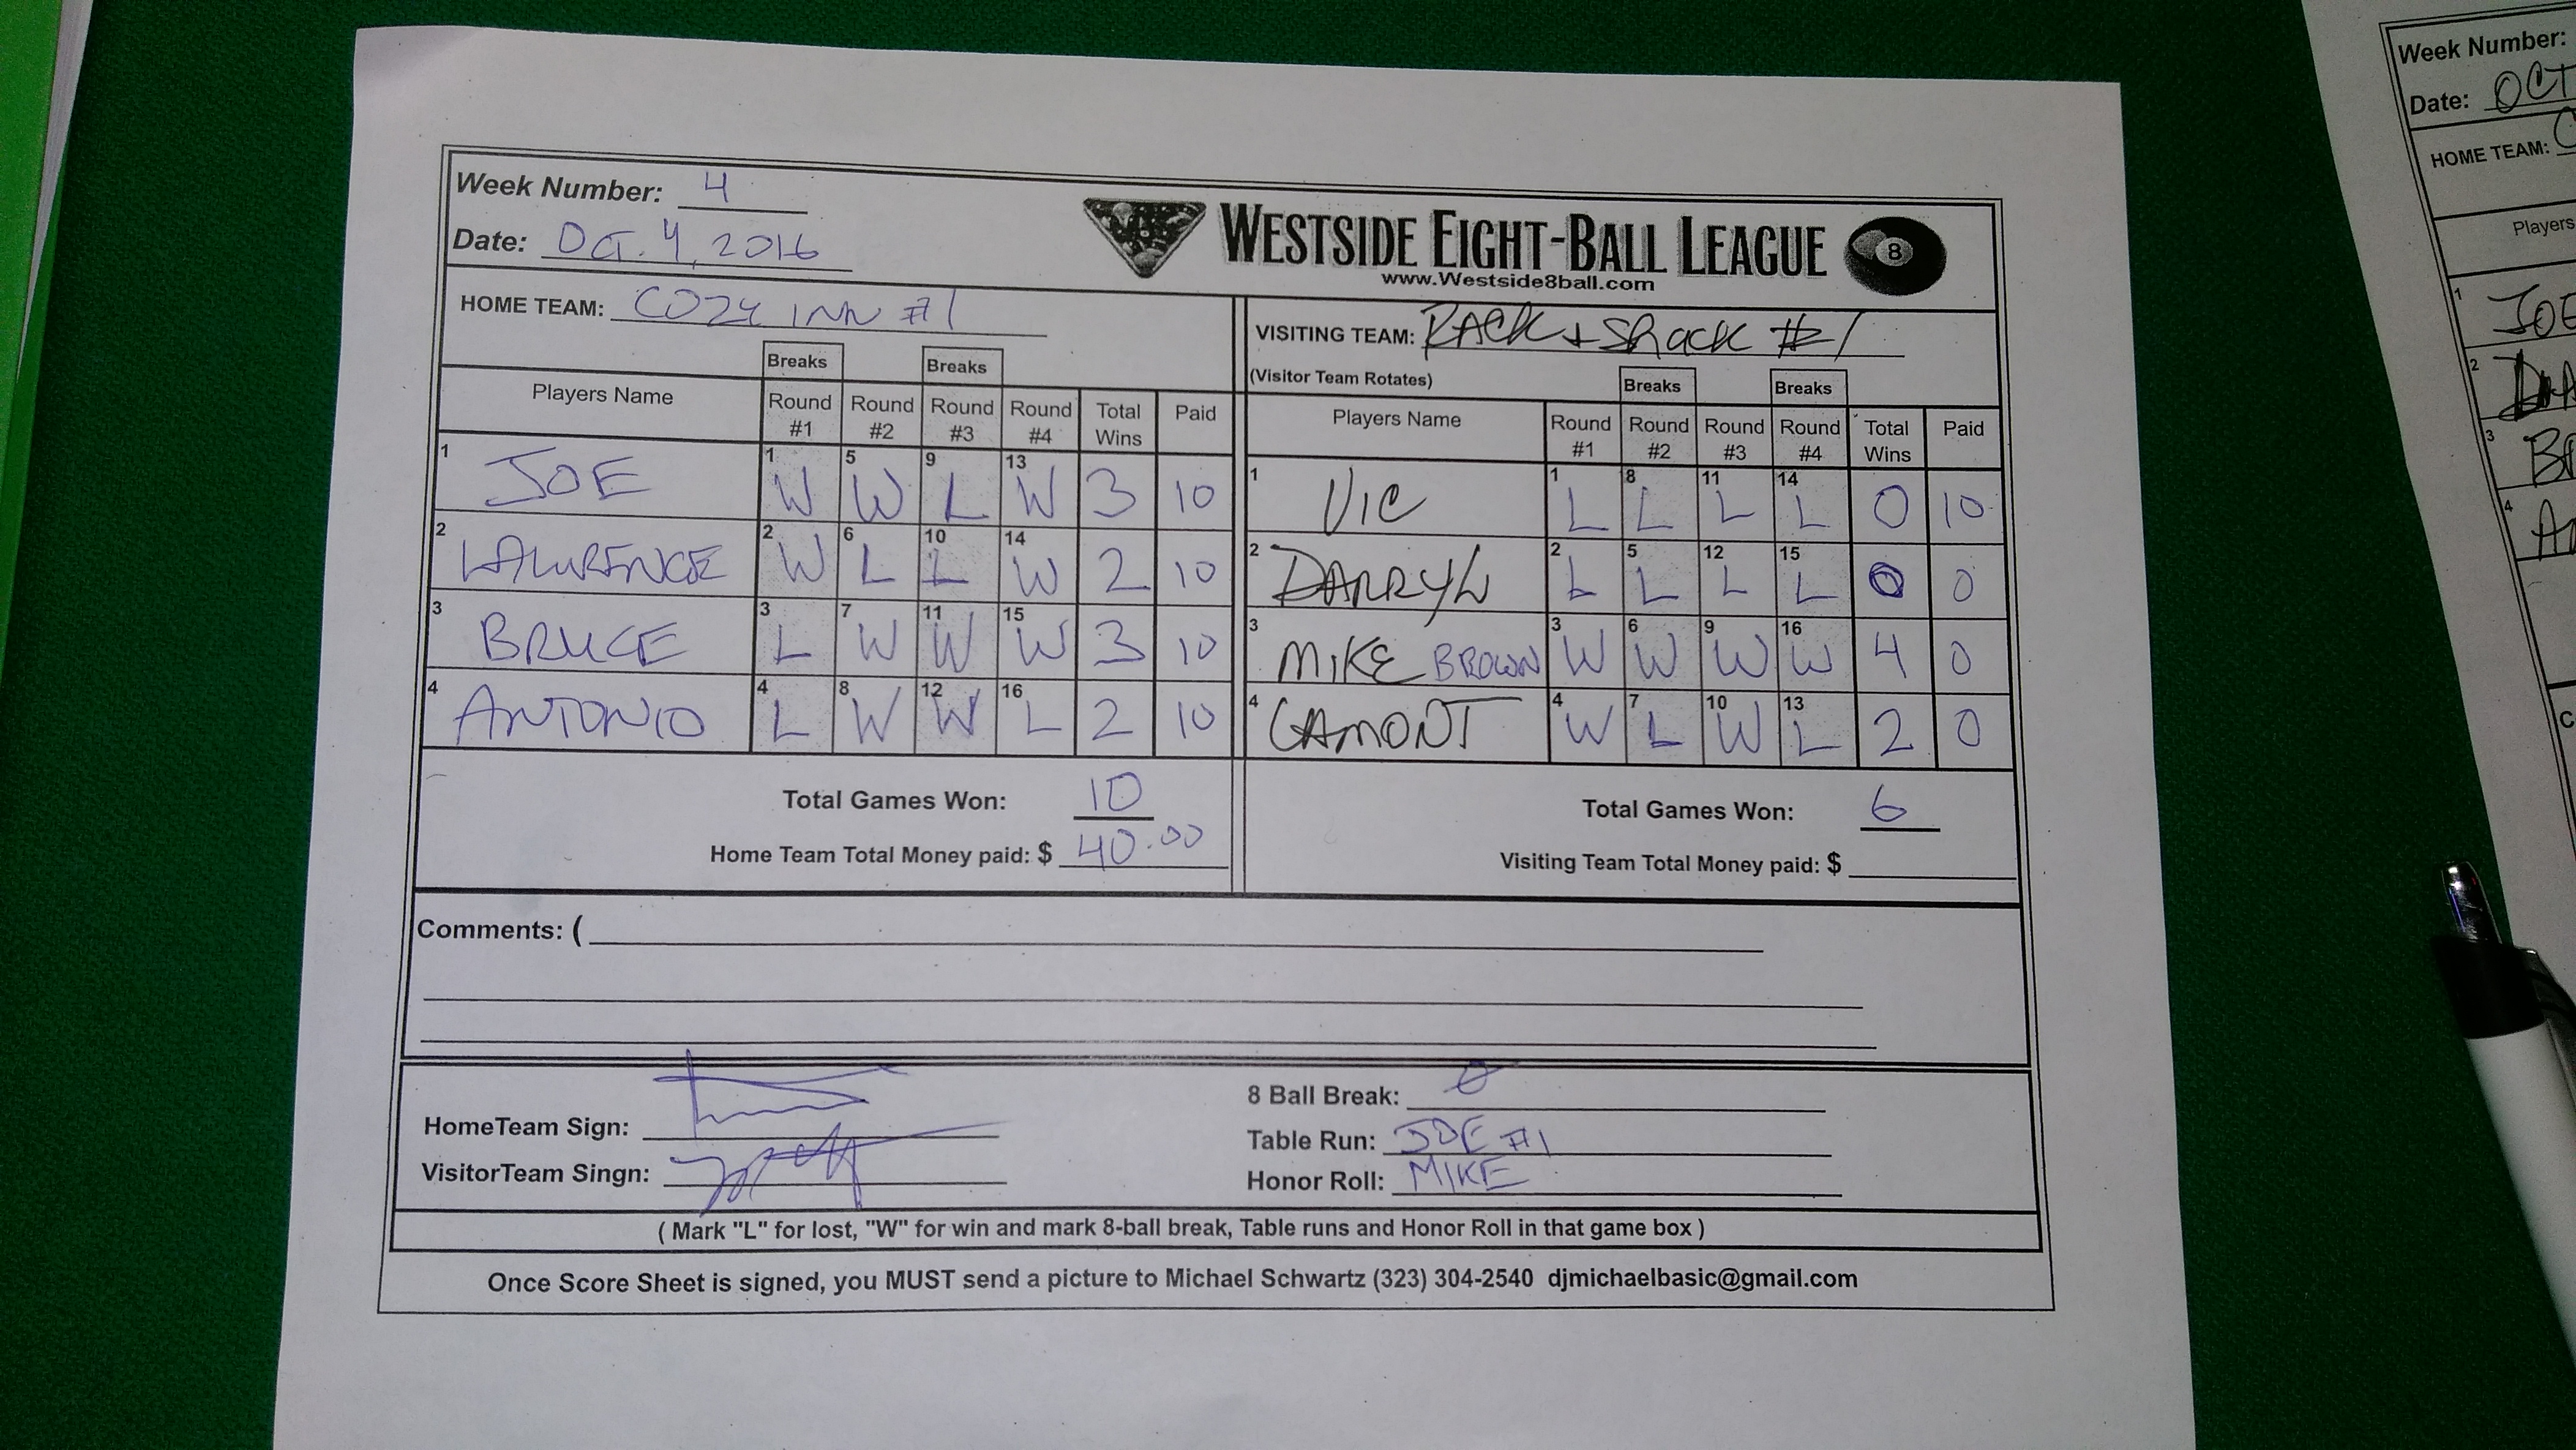 Week Number: 4
Date: Oct. 4, 2016
WESTSIDE EIGHT-BALL LEAGUE 8
www.Westside8ball.com
HOME TEAM: COZY INN #1
VISITING TEAM: RACK + SHACK #1
(Visitor Team Rotates)
Breaks Breaks
Breaks Breaks
Players Name Round #1 Round #2 Round #3 Round #4 Total Wins Paid
1 JOE 1 W 5 W 9 L 13 W 3 10
2 LAWRENCE 2 W 6 L 10 L 14 W 2 10
3 BRUCE 3 L 7 W 11 W 15 W 3 10
4 ANTONIO 4 L 8 W 12 W 16 L 2 10
Total Games Won: 10
Home Team Total Money paid: $ 40.00
Players Name Round #1 Round #2 Round #3 Round #4 Total Wins Paid
1 VIC 1 L 8 L 11 L 14 L 0 10
2 DARRYL 2 L 5 L 12 L 15 L 0 0
3 MIKE BROWN 3 W 6 W 9 W 16 W 4 0
4 LAMONT 4 W 7 L 10 W 13 L 2 0
Total Games Won: 6
Visiting Team Total Money paid: $
Comments: (
HomeTeam Sign:
VisitorTeam Singn:
8 Ball Break: 0
Table Run: JOE #1
Honor Roll: MIKE
( Mark "L" for lost, "W" for win and mark 8-ball break, Table runs and Honor Roll in that game box )
Once Score Sheet is signed, you MUST send a picture to Michael Schwartz (323) 304-2540 djmichaelbasic@gmail.com
Week Number:
Date: OCT
HOME TEAM: C
Players
1 JOE
2
3
4